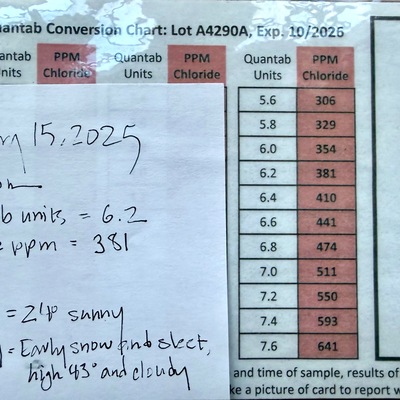 antab Conversion Chart: Lot A4290A, Exp. 10/2026
antab Units PPM Chloride Quantab Units PPM Chloride Quantab Units PPM Chloride
5.6 306
5.8 329
6.0 354
6.2 381
6.4 410
6.6 441
6.8 474
7.0 511
7.2 550
7.4 593
7.6 641
15, 2025
b units = 6.2
ppm = 381
sunny
= Early snow and sleet,
high 43° and cloudy
and time of sample, results of
ke a picture of card to report w